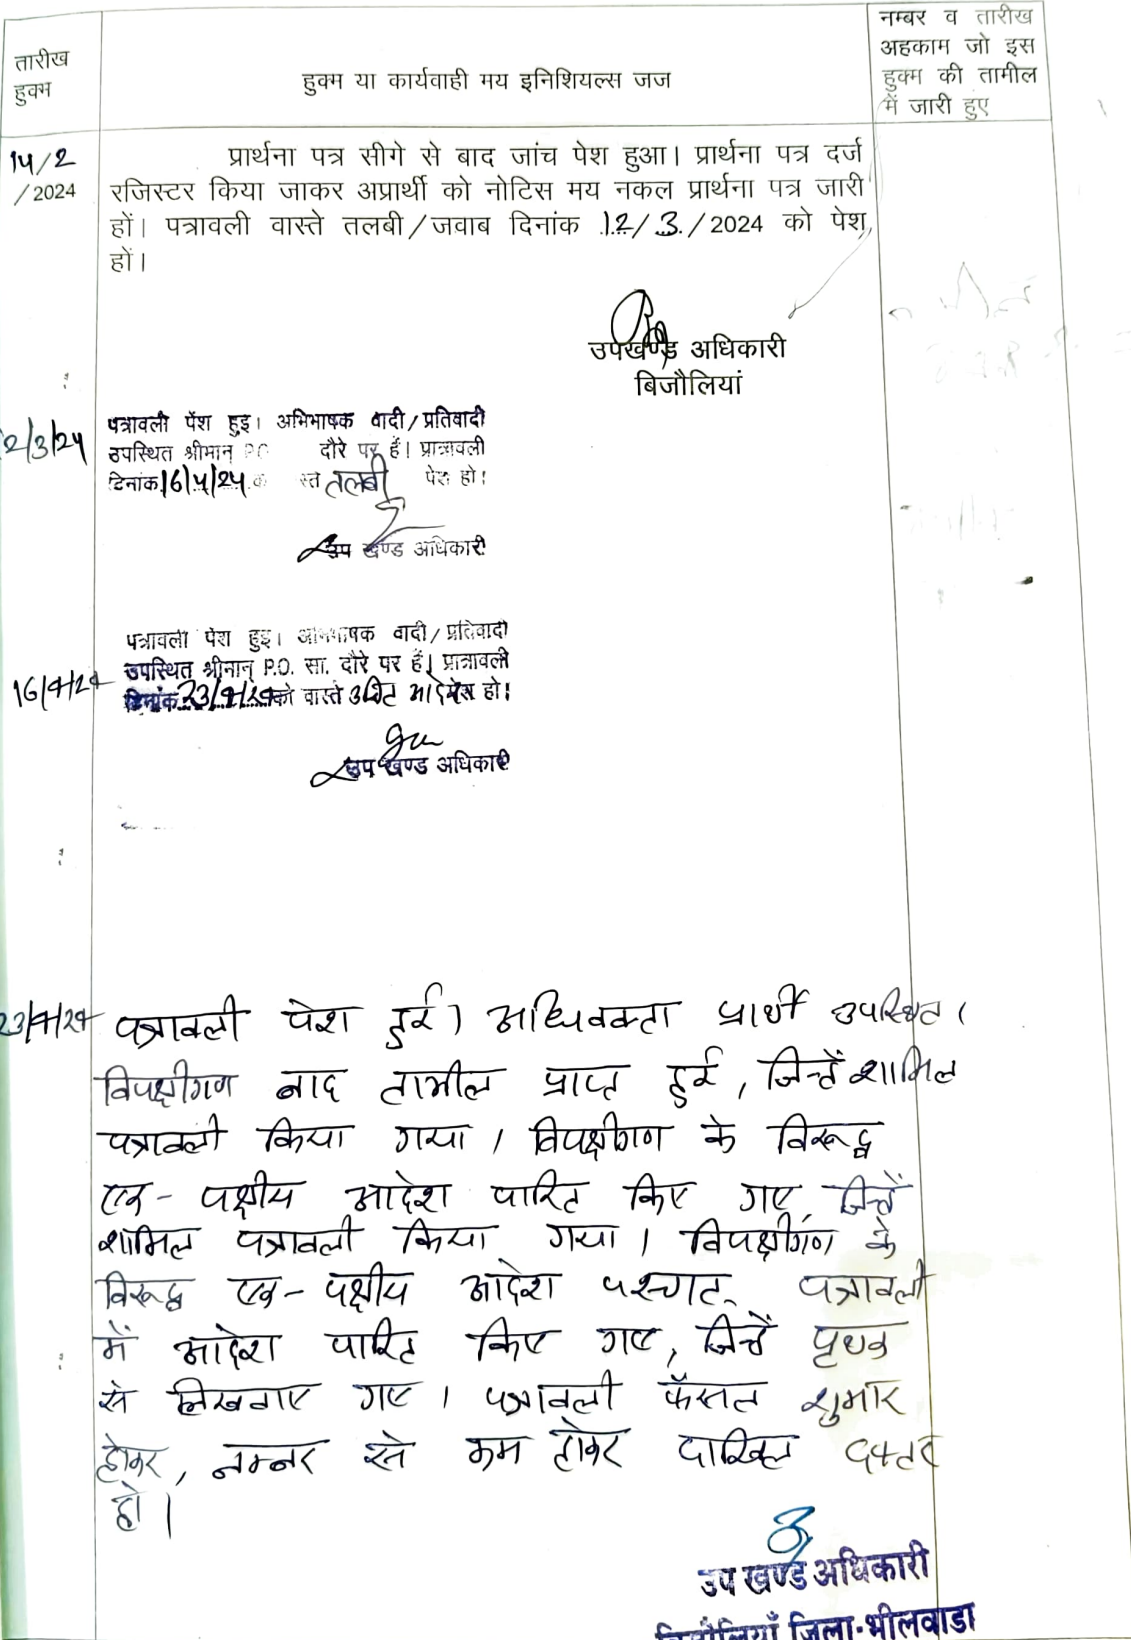 तारीख
हुक्म
हुक्म या कार्यवाही मय इनिशियल्स जज
नम्बर व तारीख
अहकाम जो इस
हुक्म की तामील
में जारी हुए
14/2
/2024
प्रार्थना पत्र सीगे से बाद जांच पेश हुआ। प्रार्थना पत्र दर्ज
रजिस्टर किया जाकर अप्रार्थी को नोटिस मय नकल प्रार्थना पत्र जारी
हों। पत्रावली वास्ते तलबी/जवाब दिनांक 12/3/2024 को पेश
हों।
उपखण्ड अधिकारी
बिजौलियां
2/3/24
पत्रावली पेंश हुइ। अभिभाषक वादी/प्रतिवादी
उपस्थित श्रीमान् P.O दौरे पर हैं। प्रात्रावली
दिनांक 16/4/24 स्ते तलबी पेश हो।
उप खण्ड अधिकारी
16/4/24
पत्रावली पेश हुइ। अभिभाषक वादी/प्रतिवादी
उपस्थित श्रीमान् P.O. सा. दौरे पर हैं। प्रात्रावली
दिनांक 23/4/24 को वास्ते उचित आदेश हो।
उप खण्ड अधिकारी
23/4/24
पत्रावली पेश हुई। अधिवक्ता प्रार्थी उपस्थित।
विपक्षीगण बाद तामील प्राप्त हुई, जिन्हें शामिल
पत्रावली किया गया। विपक्षीगण के विरूद्ध
एक-पक्षीय आदेश पारित किए गए, जिन्हें
शामिल पत्रावली किया गया। विपक्षीगण के
विरूद्ध एक-पक्षीय आदेश पश्चात् पत्रावली
में आदेश पारित किए गए, जिन्हें पृथक
से लिखवाए गए। पत्रावली फैसल शुमार
होकर, नम्बर से कम होकर दाखिल दफ्तर
हो।
उप खण्ड अधिकारी
बिजौलियाँ जिला-भीलवाडा